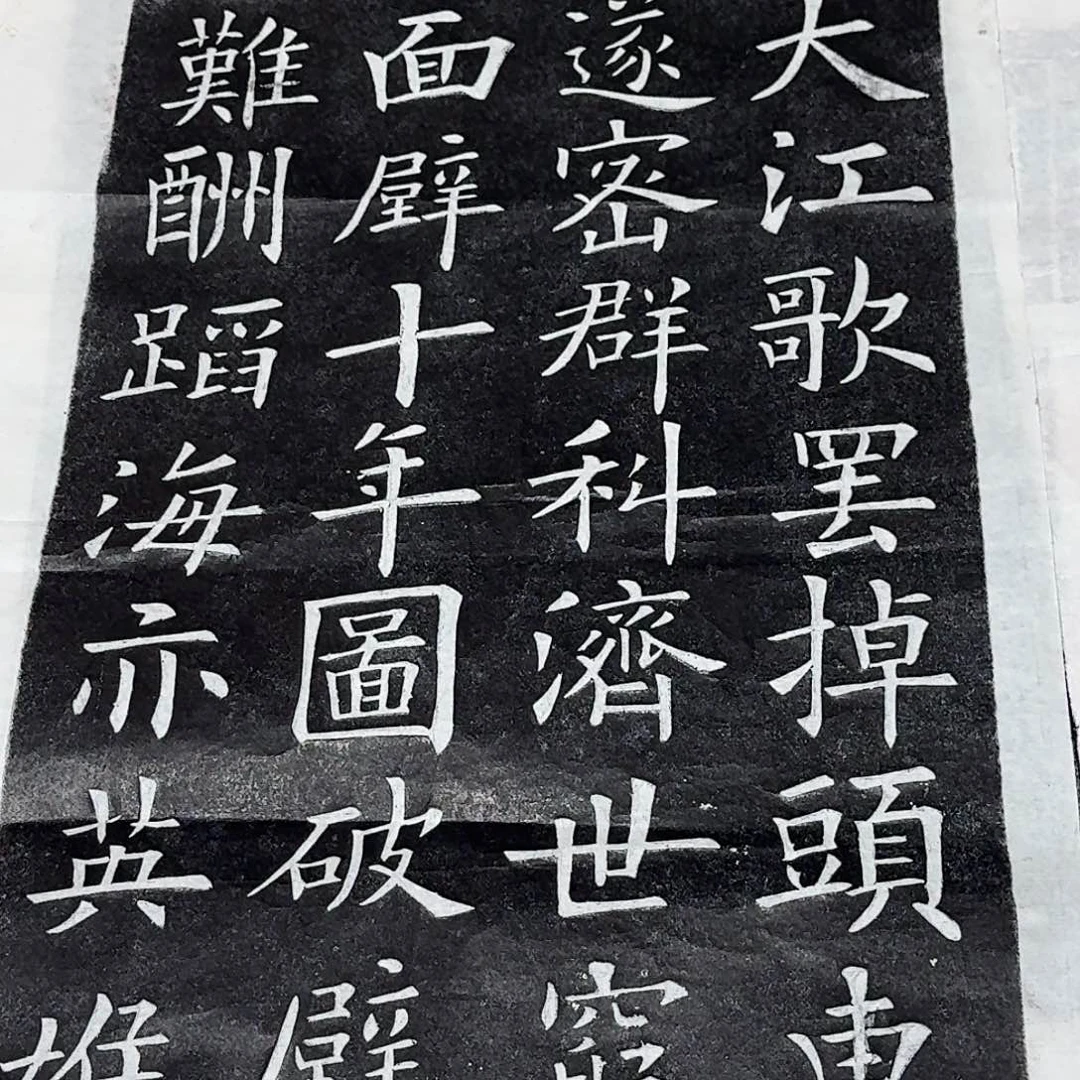 大江歌罢掉頭東
邃密群科濟世窮
面壁十年圖破壁
難酬蹈海亦英雄